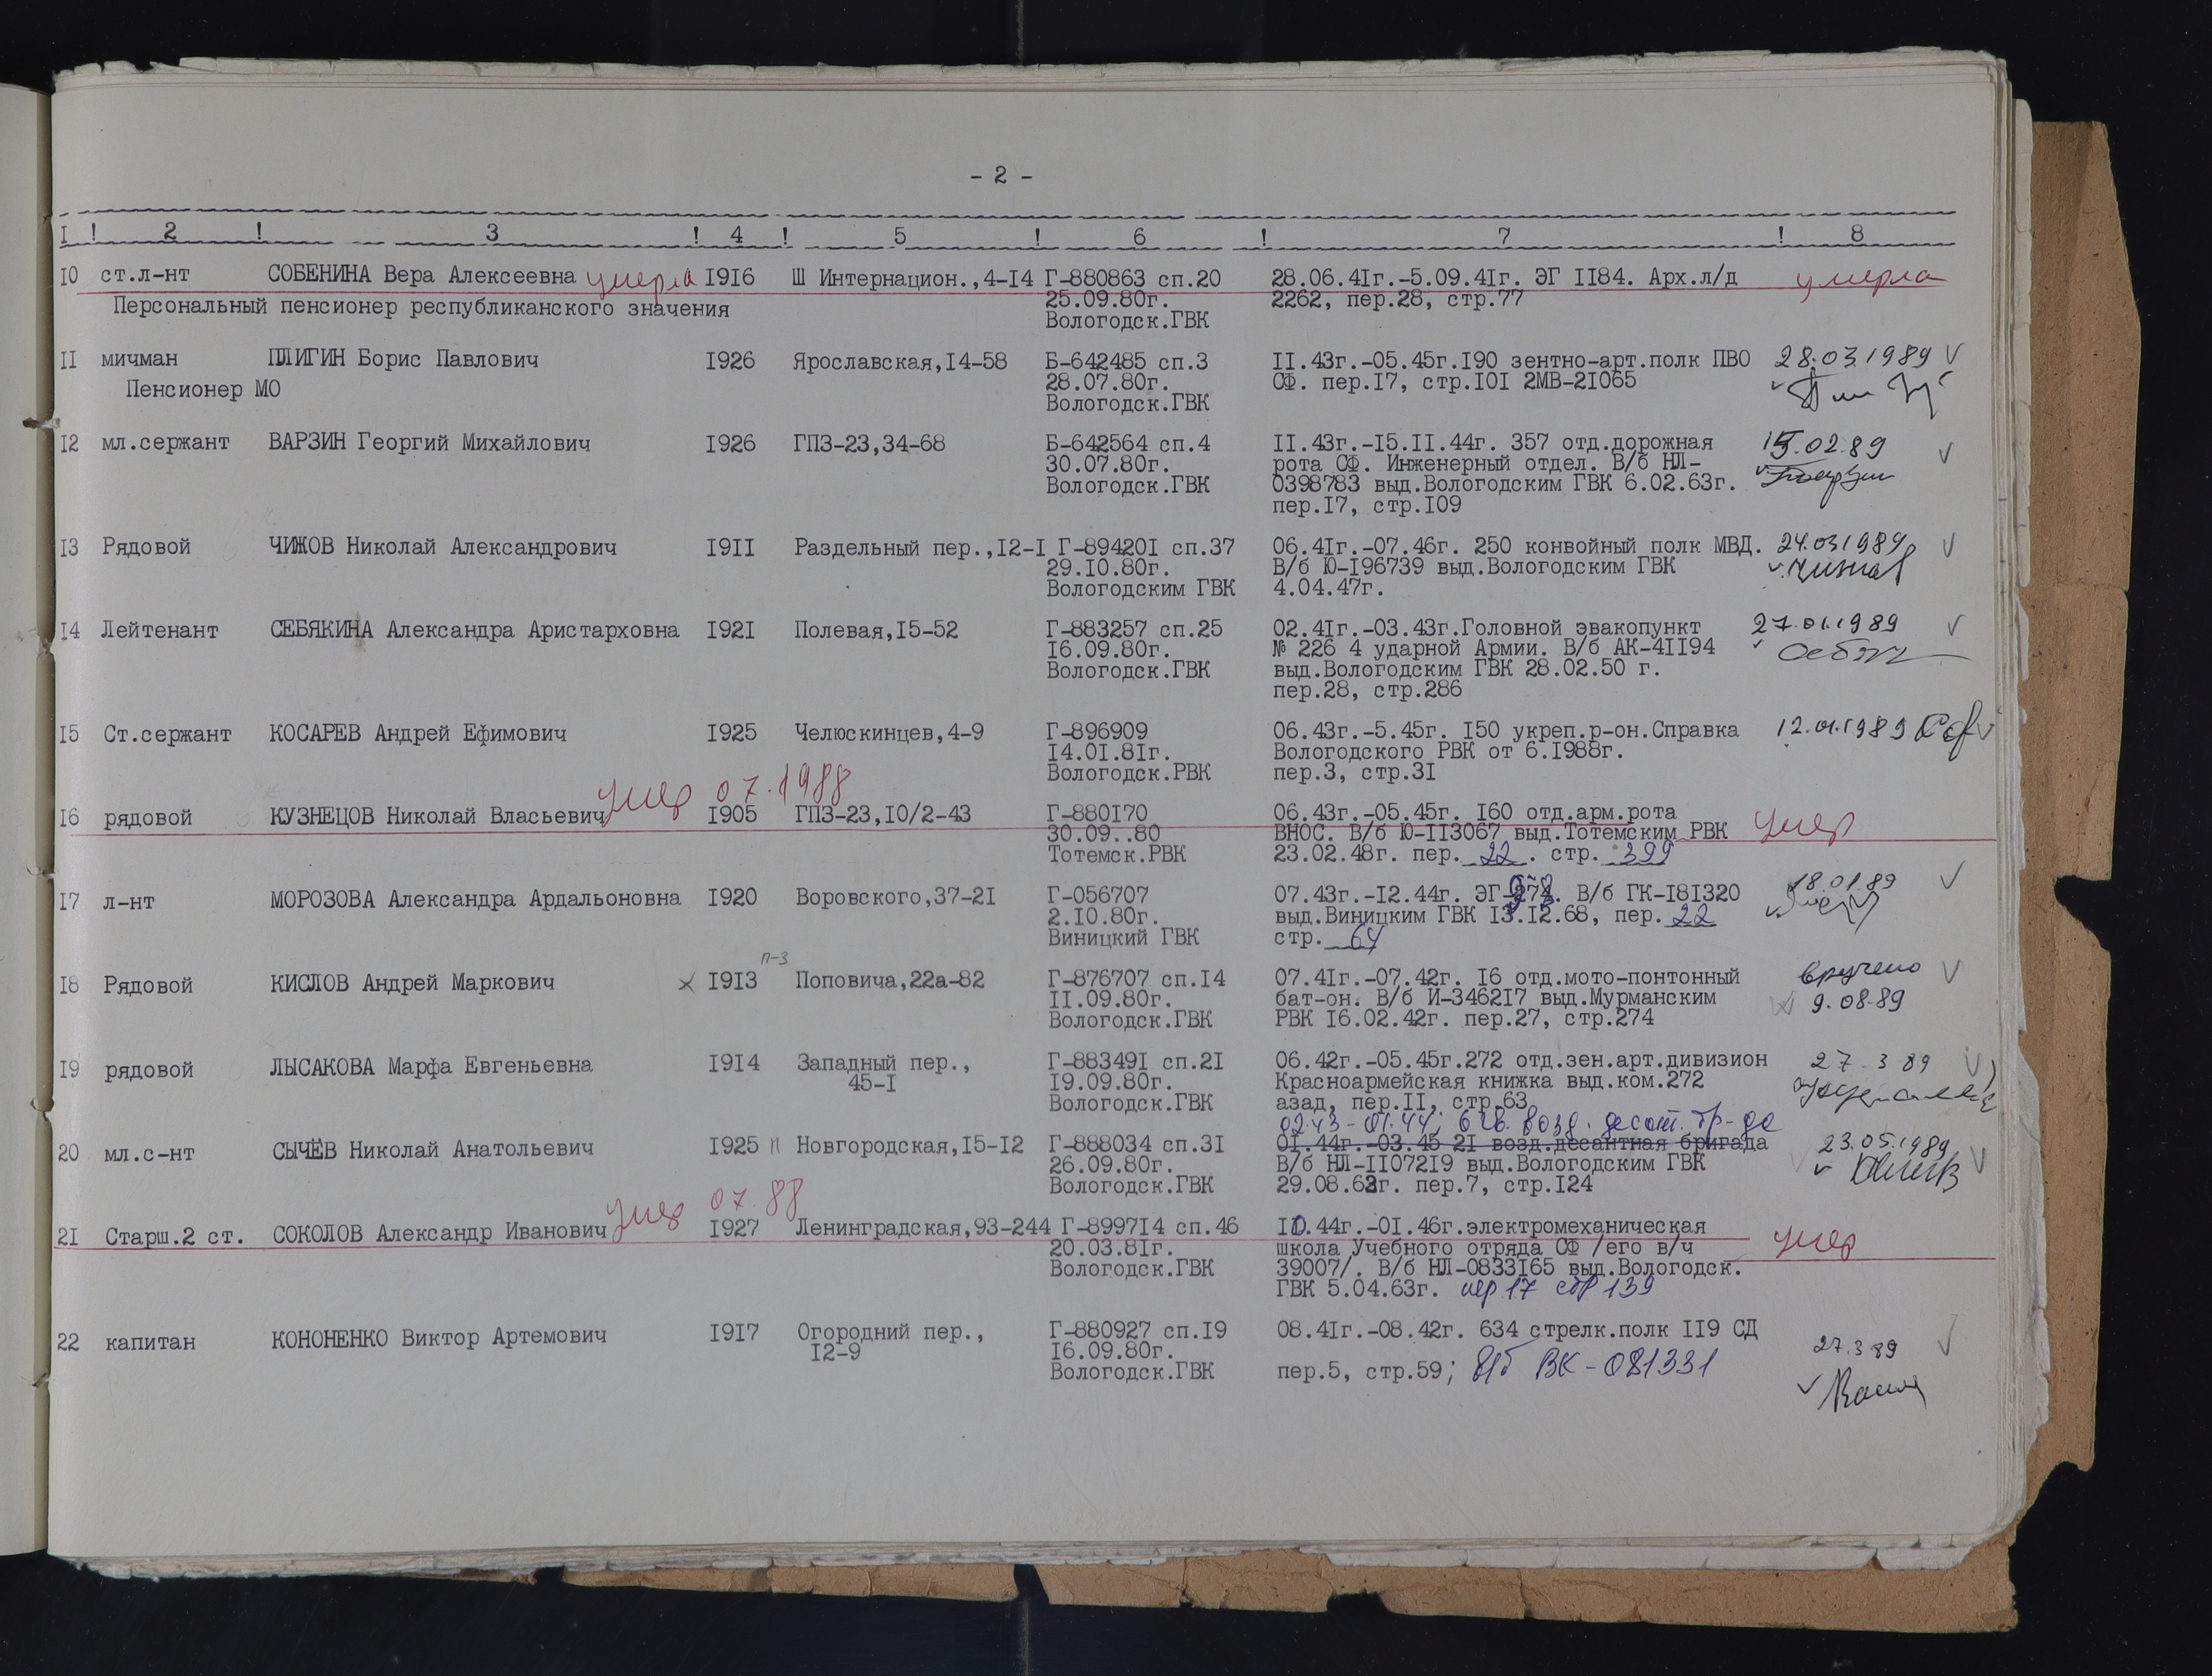 - 2 -
I ! 2 ! 3 ! 4 ! 5 ! 6 ! 7 ! 8
10 ст.л-нт СОБЕНИНА Вера Алексеевна умерла 1916 Ш Интернацион.,4-14 Г-880863 сп.20 28.06.41г.-5.09.41г. ЭГ 1184. Арх.л/д умерла
Персональный пенсионер республиканского значения 25.09.80г. 2262, пер.28, стр.77
Вологодск.ГВК
11 мичман ПЛИГИН Борис Павлович 1926 Ярославская,14-58 Б-642485 сп.3 11.43г.-05.45г.190 зентно-арт.полк ПВО 28.03.1989
Пенсионер МО 28.07.80г. СФ. пер.17, стр.101 2МВ-21065
Вологодск.ГВК
12 мл.сержант ВАРЗИН Георгий Михайлович 1926 ГПЗ-23,34-68 Б-642564 сп.4 11.43г.-15.11.44г. 357 отд.дорожная 15.02.89
30.07.80г. рота СФ. Инженерный отдел. В/б НЛ-
Вологодск.ГВК 0398783 выд.Вологодским ГВК 6.02.63г.
пер.17, стр.109
13 Рядовой ЧИЖОВ Николай Александрович 1911 Раздельный пер.,12-1 Г-894201 сп.37 06.41г.-07.46г. 250 конвойный полк МВД. 24.03.1989
29.10.80г. В/б Ю-196739 выд.Вологодским ГВК
Вологодским ГВК 4.04.47г.
14 Лейтенант СЕБЯКИНА Александра Аристарховна 1921 Полевая,15-52 Г-883257 сп.25 02.41г.-03.43г.Головной эвакопункт 27.01.1989
16.09.80г. № 226 4 ударной Армии. В/б АК-41194
Вологодск.ГВК выд.Вологодским ГВК 28.02.50 г.
пер.28, стр.286
15 Ст.сержант КОСАРЕВ Андрей Ефимович 1925 Челюскинцев,4-9 Г-896909 06.43г.-5.45г. 150 укреп.р-он.Справка 12.01.1989
14.01.81г. Вологодского РВК от 6.1988г.
Вологодск.РВК пер.3, стр.31
умер 07.1988
16 рядовой КУЗНЕЦОВ Николай Власьевич 1905 ГПЗ-23,10/2-43 Г-880170 06.43г.-05.45г. 160 отд.арм.рота умер
30.09..80 ВНОС. В/б Ю-113067 выд.Тотемским РВК
Тотемск.РВК 23.02.48г. пер. 22 . стр. 399
17 л-нт МОРОЗОВА Александра Ардальоновна 1920 Воровского,37-21 Г-056707 07.43г.-12.44г. ЭГ-274. В/б ГК-181320 18.01.89
2.10.80г. выд.Виницким ГВК 13.12.68, пер. 22
Виницкий ГВК стр. 64
п-3
18 Рядовой КИСЛОВ Андрей Маркович 1913 Поповича,22а-82 Г-876707 сп.14 07.41г.-07.42г. 16 отд.мото-понтонный вручено
11.09.80г. бат-он. В/б И-346217 выд.Мурманским 9.08.89
Вологодск.ГВК РВК 16.02.42г. пер.27, стр.274
19 рядовой ЛЫСАКОВА Марфа Евгеньевна 1914 Западный пер., Г-883491 сп.21 06.42г.-05.45г.272 отд.зен.арт.дивизион 27.3 89
45-1 19.09.80г. Красноармейская книжка выд.ком.272
Вологодск.ГВК азад, пер.11, стр.63
02.43-01.44, 6 гв. возд. десант. бр-да
20 мл.с-нт СЫЧЁВ Николай Анатольевич 1925 п Новгородская,15-12 Г-888034 сп.31 01.44г.-03.45 21 возд.десантная бригада 23.05.1989
26.09.80г. В/б НЛ-1107219 выд.Вологодским ГВК
Вологодск.ГВК 29.08.62г. пер.7, стр.124
умер 07.88
21 Старш.2 ст. СОКОЛОВ Александр Иванович 1927 Ленинградская,93-244 Г-899714 сп.46 10.44г.-01.46г.электромеханическая умер
20.03.81г. школа Учебного отряда СФ /его в/ч
Вологодск.ГВК 39007/. В/б НЛ-0833165 выд.Вологодск.
ГВК 5.04.63г. пер 17 стр 139
22 капитан КОНОНЕНКО Виктор Артемович 1917 Огородний пер., Г-880927 сп.19 08.41г.-08.42г. 634 стрелк.полк 119 СД
12-9 16.09.80г. 27.3 89
Вологодск.ГВК пер.5, стр.59; в/б ВК-081331